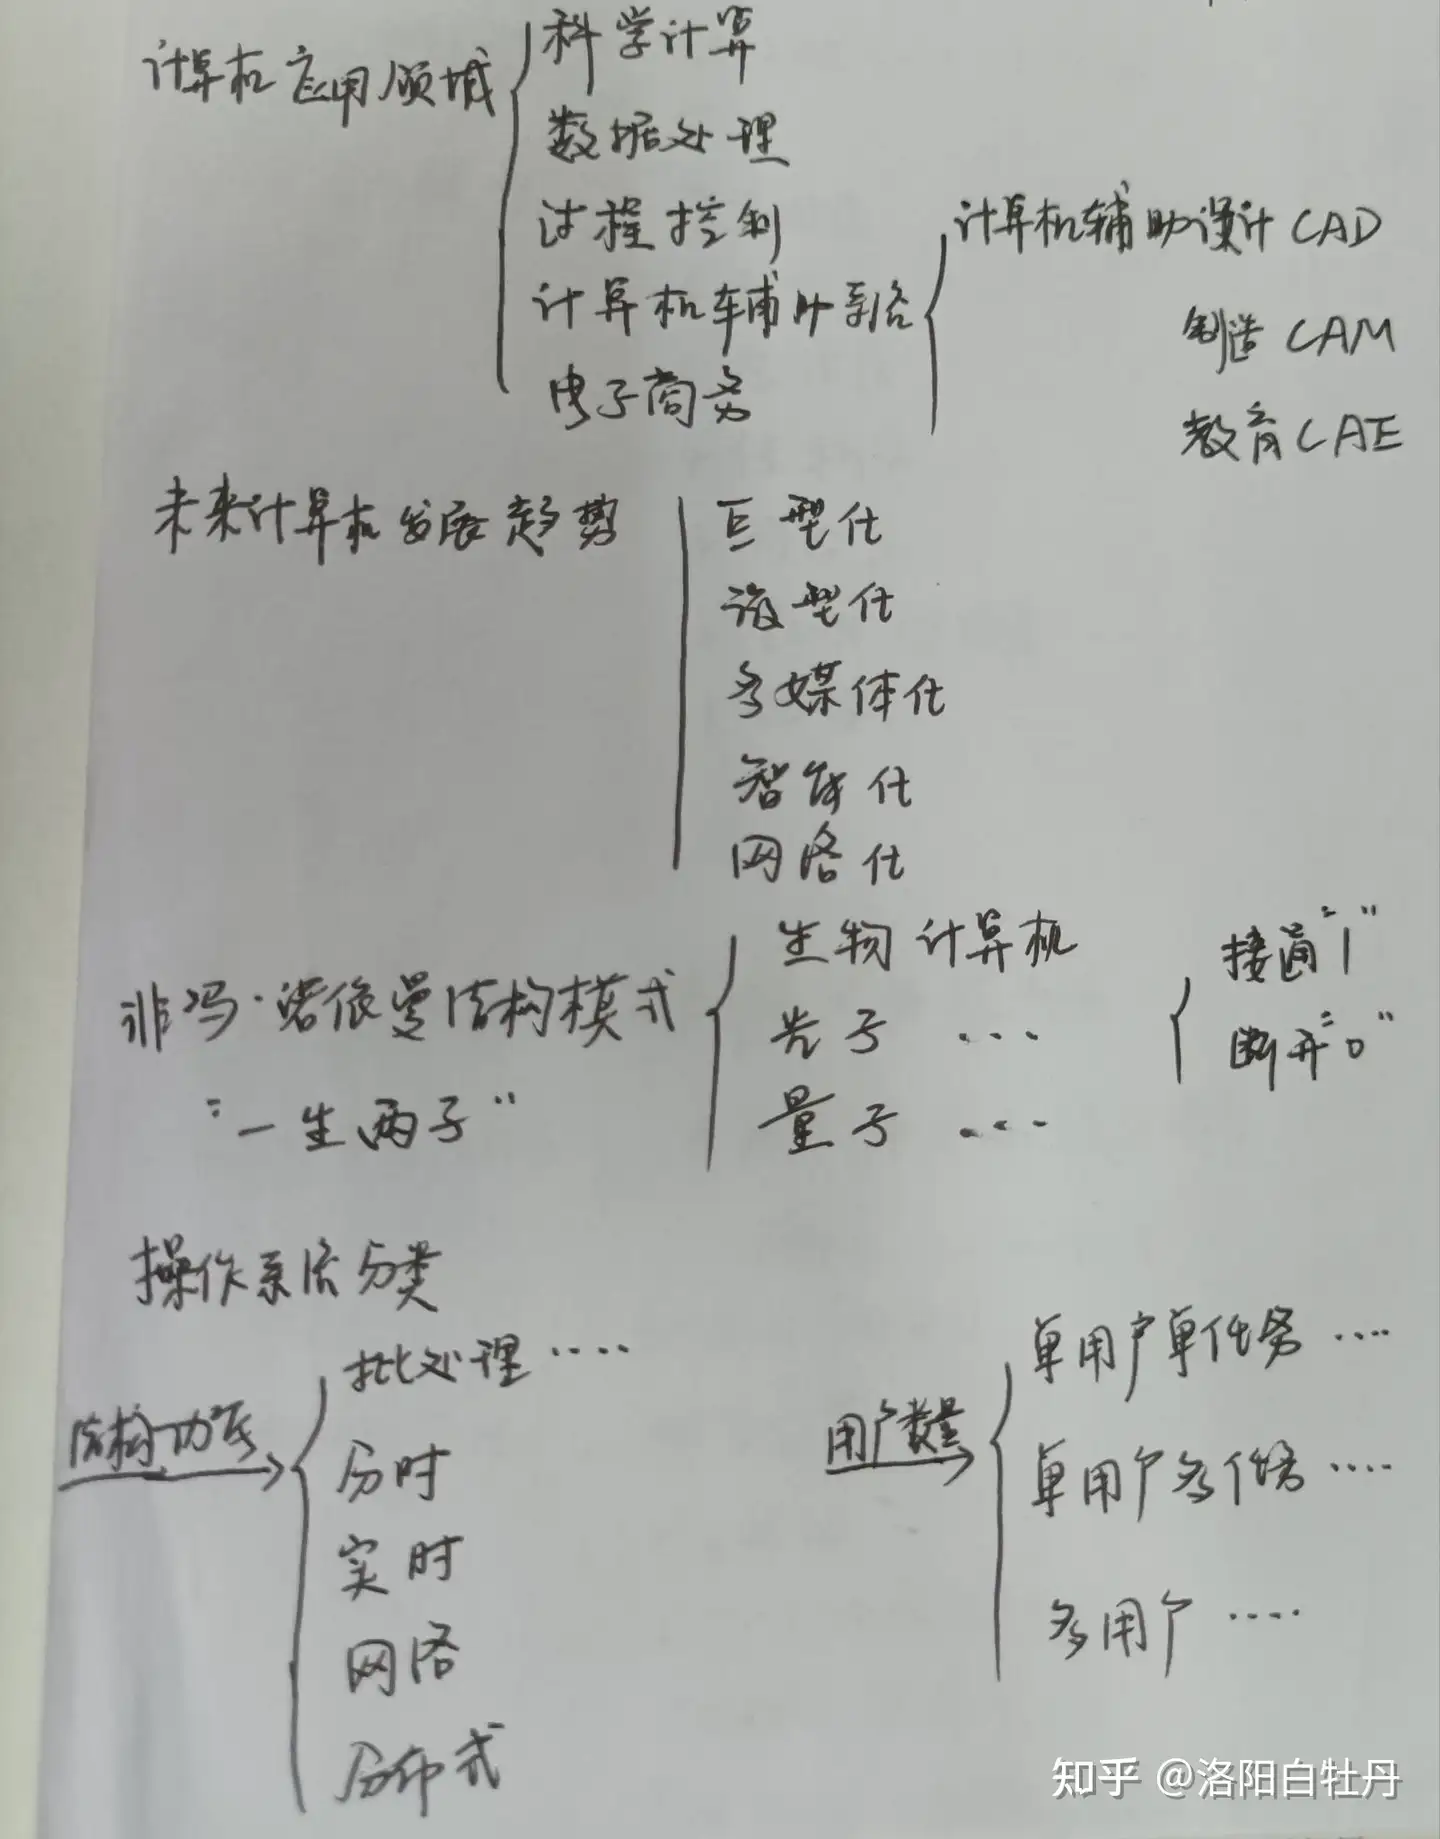 计算机应用领域
科学计算
数据处理
过程控制
计算机辅助系统
计算机辅助设计 CAD
制造 CAM
教育 CAE
电子商务
未来计算机发展趋势
巨型化
微型化
多媒体化
智能化
网络化
非冯·诺依曼结构模式
"一生两子"
生物计算机
光子 ...
量子 ...
接通"1"
断开"0"
操作系统分类
结构功能
批处理 ....
分时
实时
网络
分布式
用户数量
单用户单任务 ....
单用户多任务 ....
多用户 ....
知乎 @洛阳白牡丹